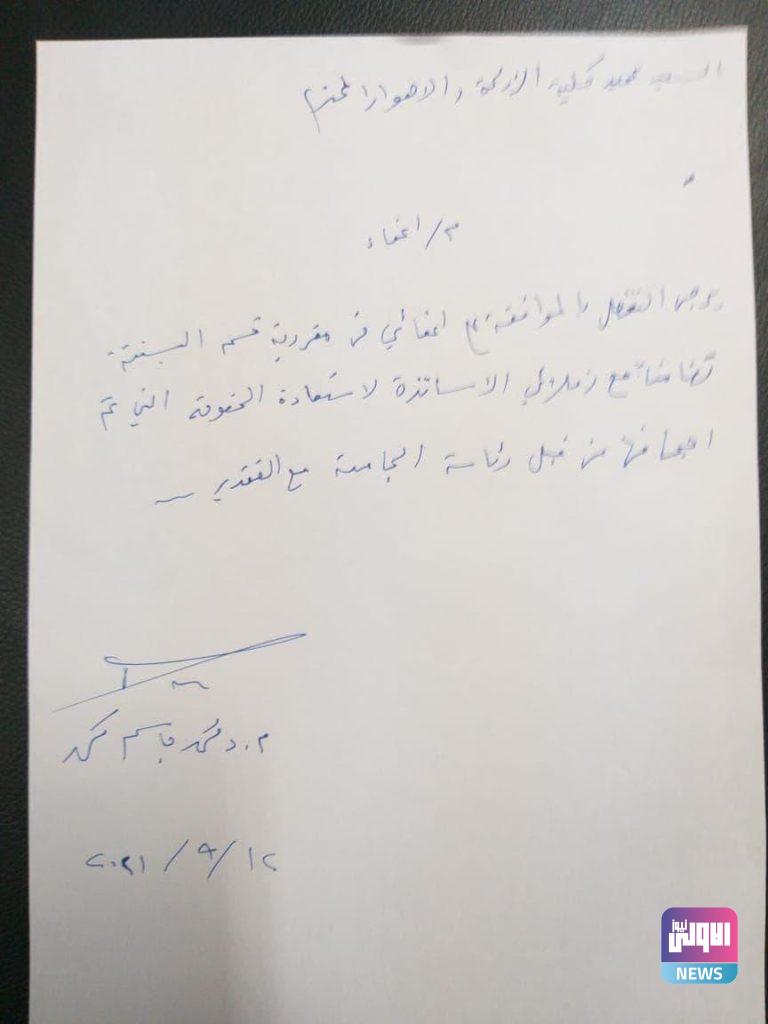 السيد عميد كلية الزراعة والاهوار المحترم
م/ اعفاء
يرجى التفضل بالموافقة على اعفائي من مقررية قسم البستنة
تضامناً مع زملائي الاساتذة لاستعادة الحقوق التي تم
اجحافها من قبل رئاسة الجامعة مع التقدير
م.د محمد قاسم محمد
٢٠٢١ / ٩ / ١٢
الاولى نيوز
NEWS